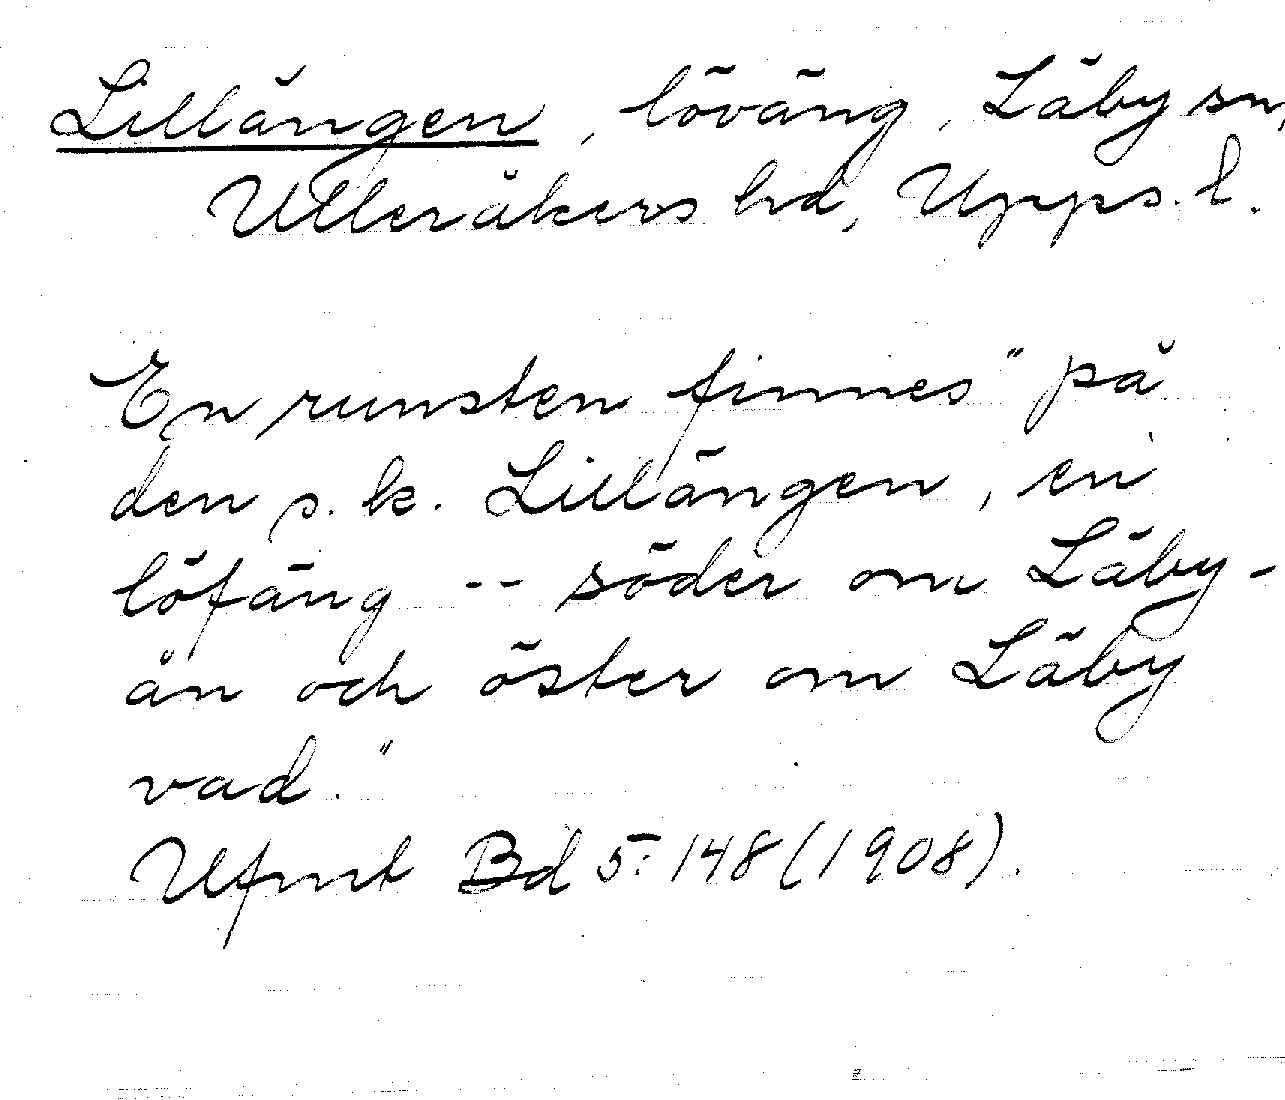 Lillängen, löväng, Läby sn,
Ulleråkers hd, Upps. l.
En runsten finnes "på
den s.k. Lillängen, en
löfäng -- söder om Läby-
ån och öster om Läby
vad."
Ufmt Bd 5:148 (1908).